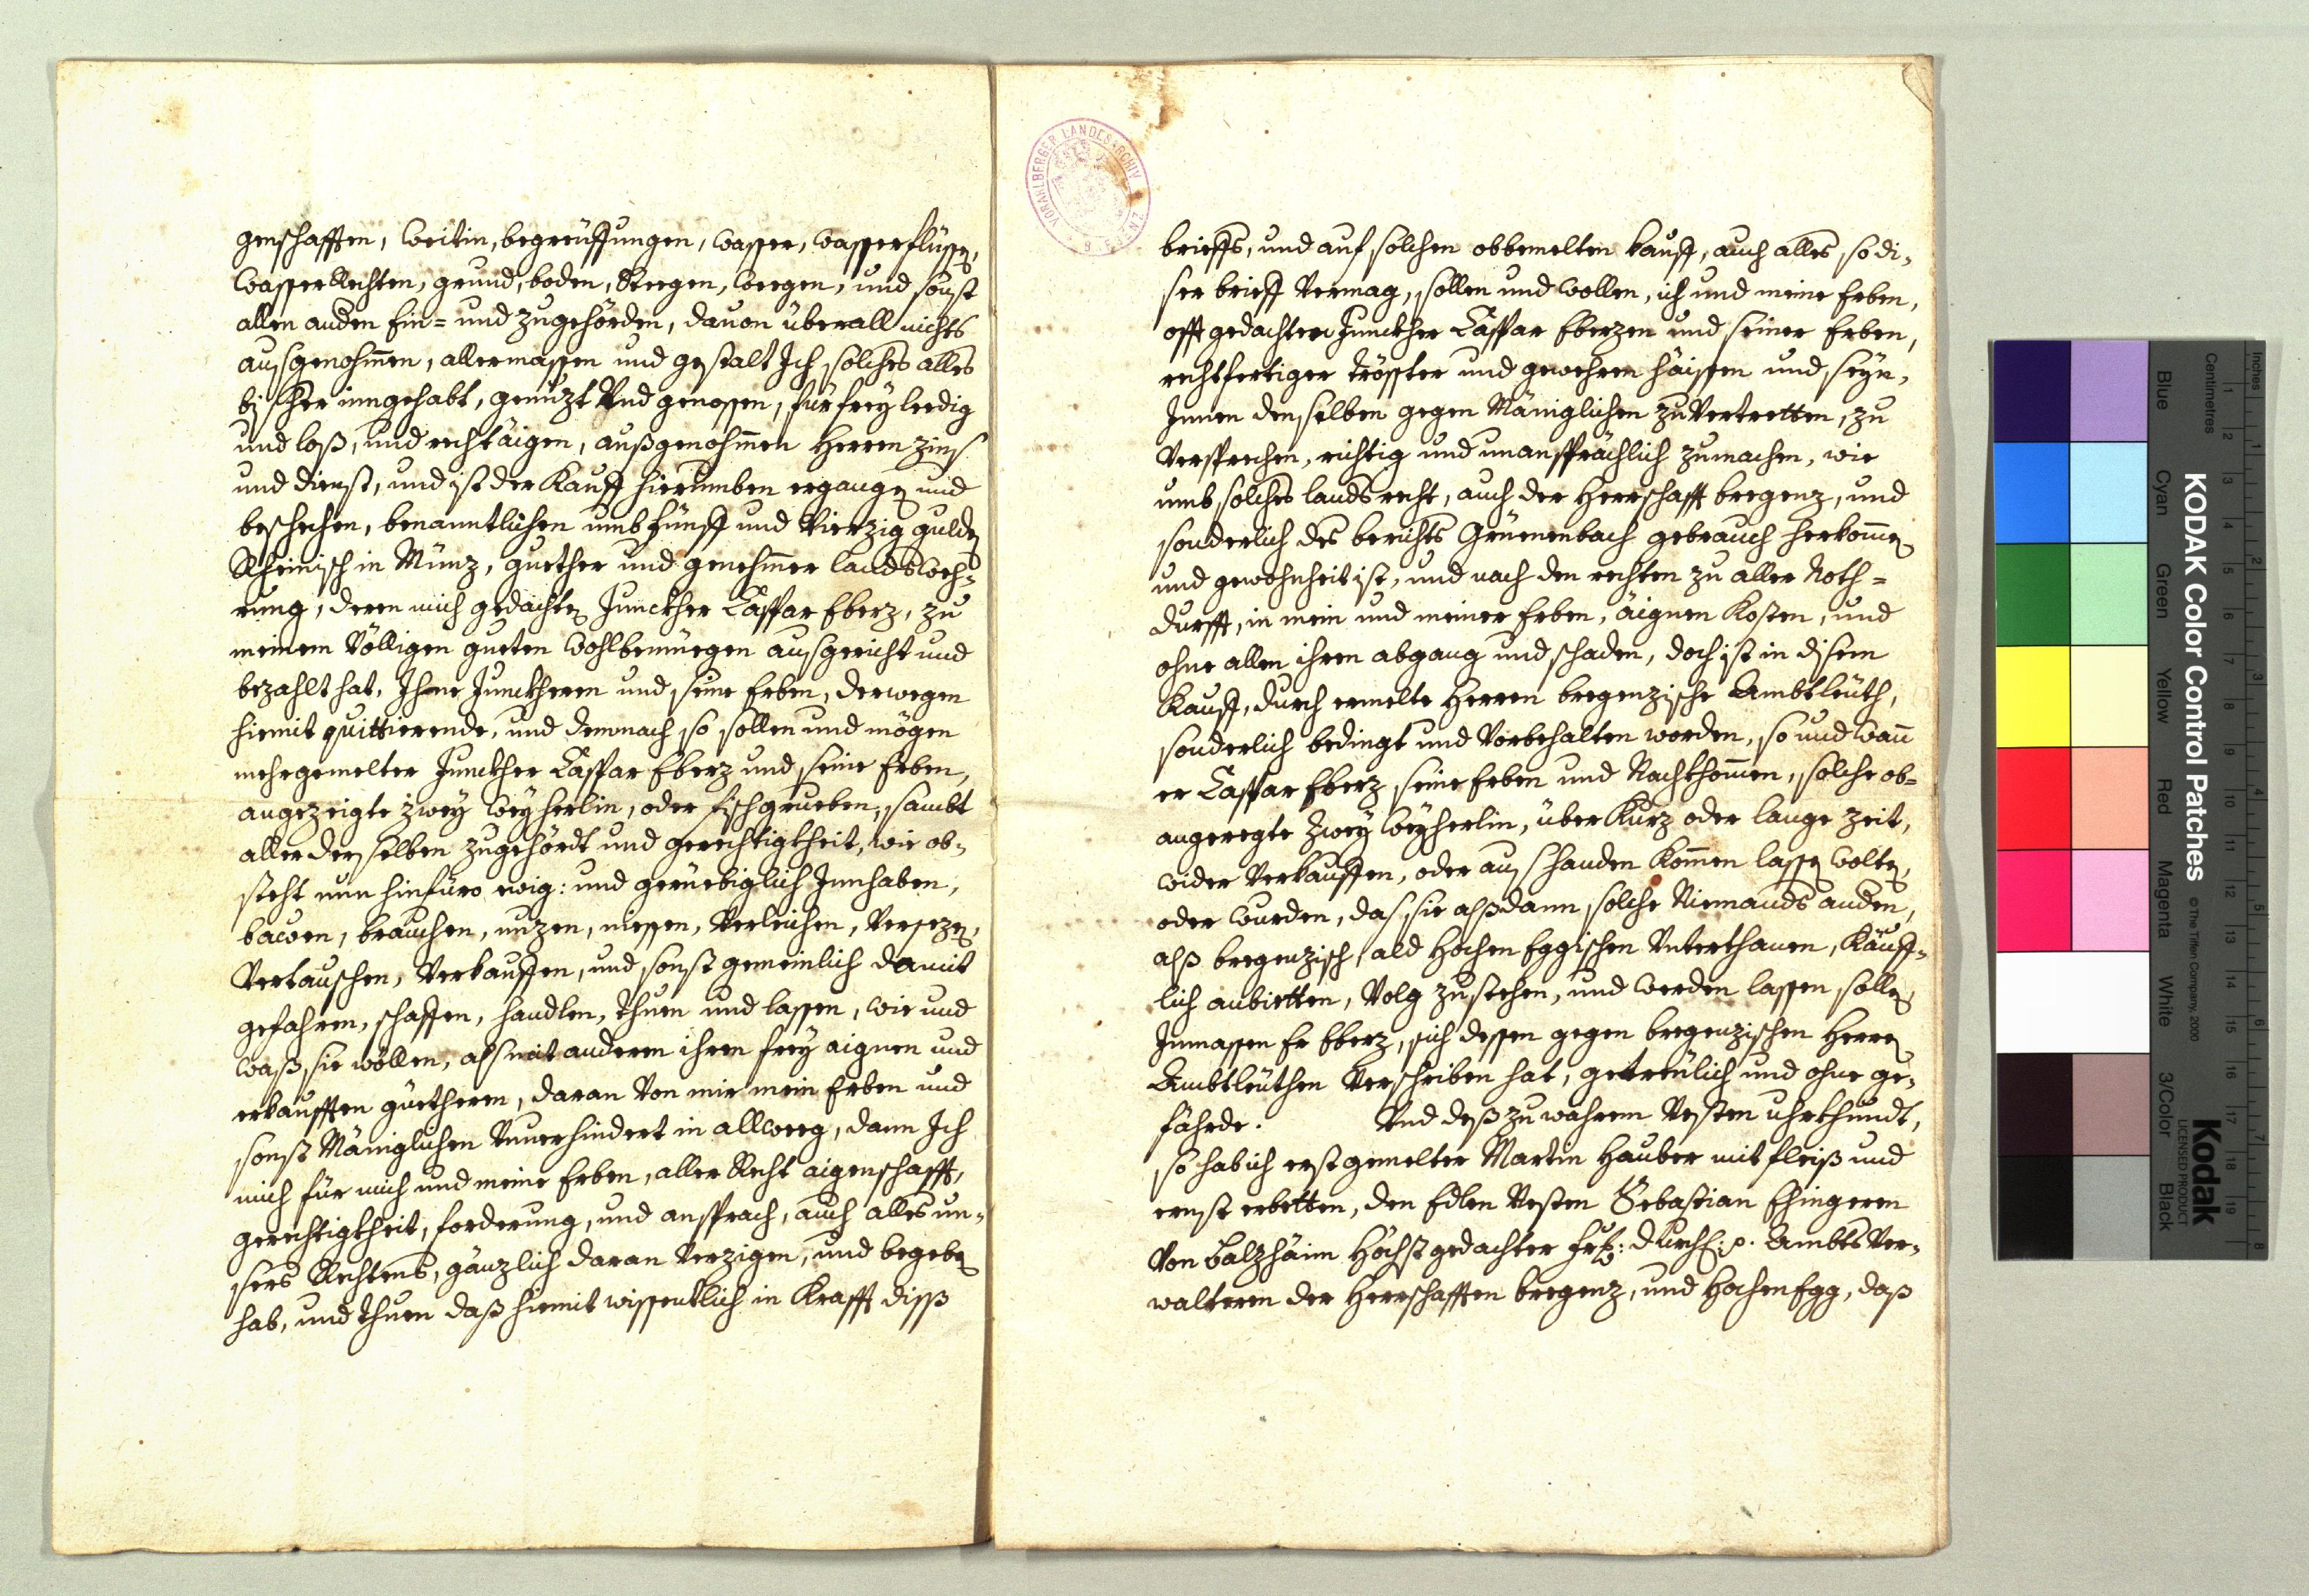 genschafften, Weitin, begreiffungen, Wasser, Wasserflüssen,
WasserRechten, grund, boden, Steegen, Weegen, und sonst
allen andern Ein= und zugehörden, dauon überall nichts
ausgenohmen, allermassen und gestalt Ich solches alles
bis her inngehabt, genuzt Vnd genossen, für frey leedig
und loß, und recht äigen, außgenohmen Herren zins
und dienst, und ist der Kauff hierumben ergangen und
beschehen, benanntlichen umb fünff und Vierzig gulden
Rheinisch in Münz, guether und genehmer landsWeh=
rung, deren mich gedachter Junckher Caspar Eberz, zu
meinem Völligen gueten Wohlbenüegen ausgericht und
bezahlt hat, Ihne Junckheren und seine Erben, derwegen
hiemit quittierende, und demnach so sollen und mögen
mehrgemelter Junckher Caspar Eberz und seine Erben,
angezeigte zwey Weyherlin, oder fischgrueben, sambt
aller derselben zugehördt und gerechtigkheit, wie ob=
steht nun hinfüro ewig: und gerüebiglich Innhaben,
bawen, brauchen, nuzen, niessen, Verleihen, Versezen,
Vertauschen, Verkauffen, und sonst gemeinlich damit
gefahren, schaffen, handlen, thuen und lassen, wie und
Waß sie wöllen, als mit anderen ihren frey aignen und
erkaufften güetheren, daran Von mir mein Erben und
sonst Mäniglichen Vnuerhindert in allweeg, dann Ich
mich für mich und meine Erben, aller Recht aigenschafft,
gerechtigkheit, forderung, und ansprach, auch alles un=
sers Rechtens, gänzlich daran Verzigen, und begeben
hab, und thuen daß hiemit wissentlich in Krafft diss
VORARLBERGER LANDES-ARCHIV
brieffs, und auf solchen obbemelten kauff, auch alles so di=
ser brieff Vermag, sollen und wollen, ich und meine Erben,
offt gedachten Junckher Caspar Eberzen und seiner Erben,
rechtfertiger tröster und gewehren häissen und seyn,
Innen denselben gegen Mäniglichen zuVertretten, zu
Versprechen, richtig und unansprächlich zumachen, wie
umb solches landsrecht, auch der Herrschafft bregenz, und
sonderlich des berichts Grüenenbach gebrauch herkomen
und gewohnheit ist, und nach den rechten zu aller Noth=
durfft, in mein und meiner Erben, äignen Kosten, und
ohne allen ihren abgang und schaden, doch ist in disem
Kauff, durch ermelte Herren bregenzische Ambtleüth,
sonderlich bedingt und Vorbehalten worden, so und wañ
er Caspar Eberz seine Erben und Nachkhomen, solche ob=
angeregte Zwey Weyherlin, über Kurz oder lange zeit,
wider Verkauffen, oder aus handen Komen lassen wolten,
oder wurden, das sie alßdann solche Niemands andern,
alß bregenzisch ald Hochen Eggischen Vnterthanen, Käuff=
lich anbietten, Volg zustehen, und werden lassen sollen
Inmassen Er Eberz, sich dessen gegen bregenzischen Herren
Ambtleüthen Verschriben hat, getreülich und ohne ge=
fährde. Vnd deß zu wahrem Vesten uhrkhundt,
so hab ich erstgemelter Martin Hauber mit fleiß und
ernst erbetten, den Edlen Vesten Sebastian Ehingeren
Von Balzhäim Höchstgedachter frs: Durchl: p. AmbtsVer=
walteren der Herrschafften bregenz, und HochenEgg, daß
KODAK Color Control Patches
© The Tiffen Company, 2000
Kodak
LICENSED PRODUCT
Blue
Cyan
Green
Yellow
Red
Magenta
White
3/Color
Black
Inches
Centimetres
1 2 3 4 5 6 7 8 9 10 11 12 13 14 15 16 17 18 19
1 2 3 4 5 6 7 8